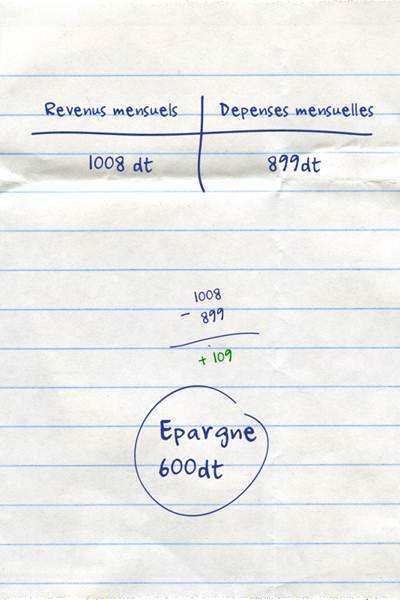 Revenus mensuels Depenses mensuelles
1008 dt 899dt
1008
- 899
+ 109
Epargne
600dt